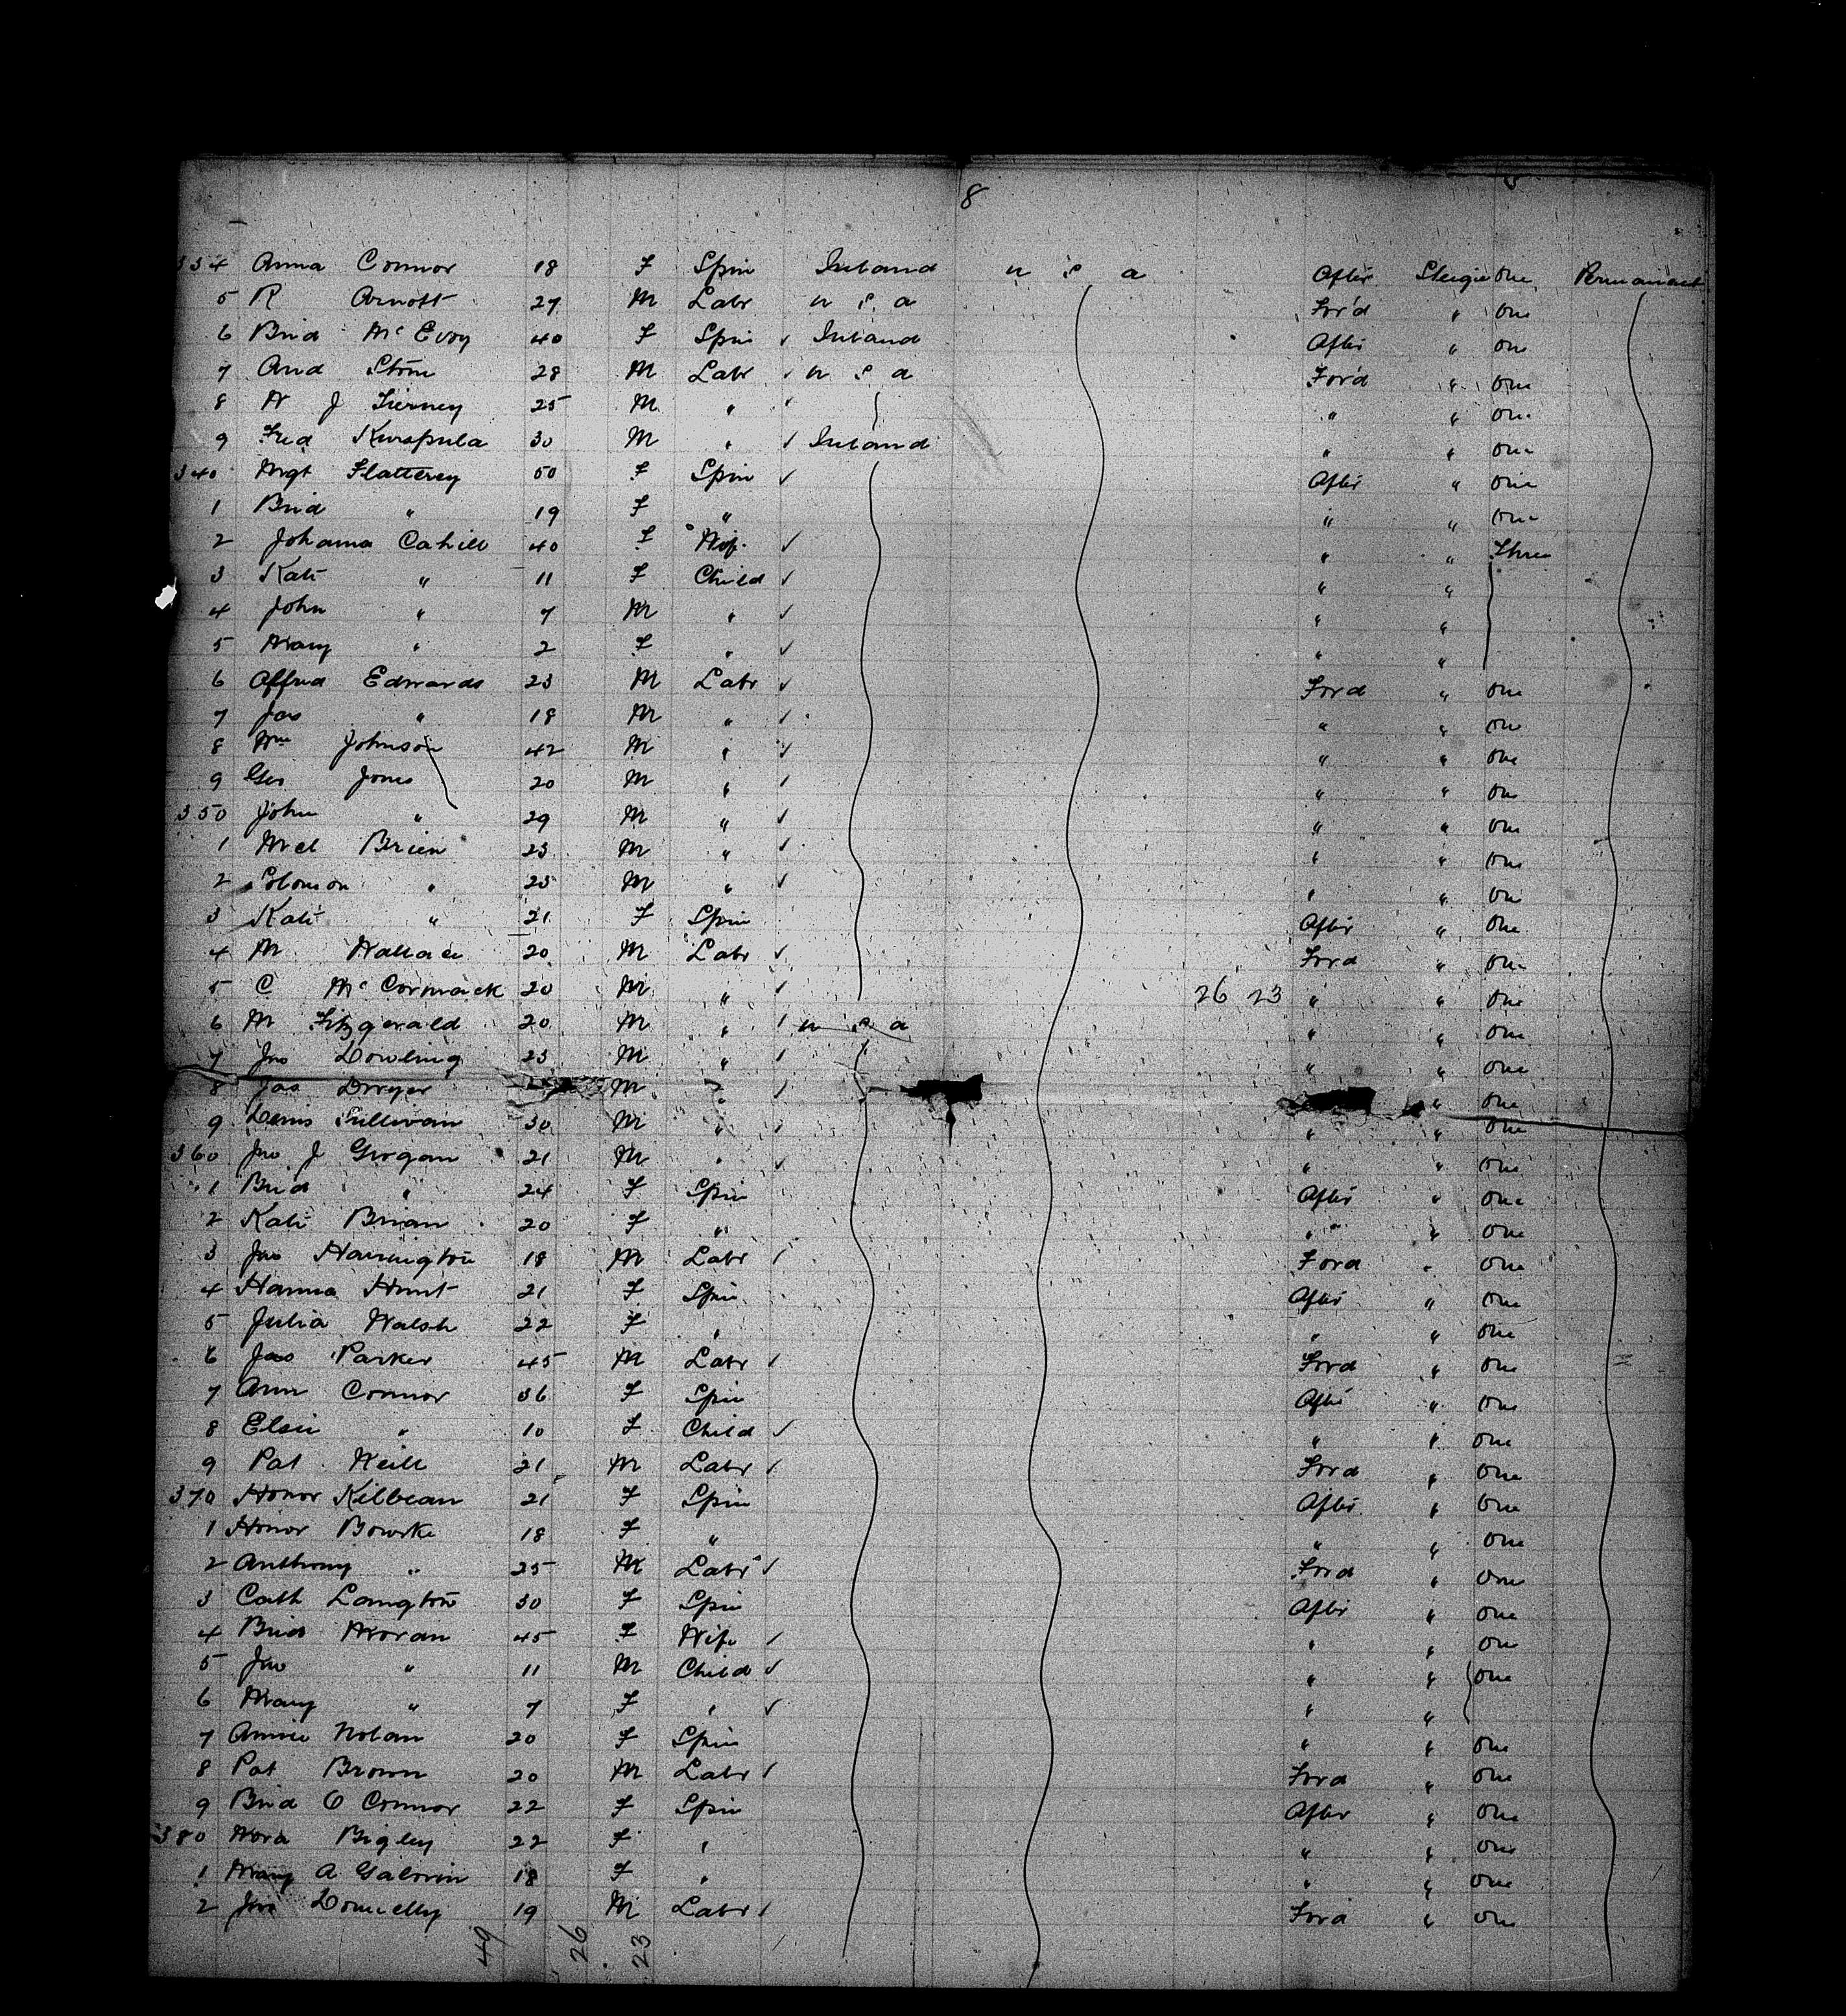 8
334 Anna Connor 18 F Spin Ireland U S A After Steerage One Permanent
5 R Arnott 27 M Labr U S A For'd " One
6 Brid McEvoy 40 F Spin ✓ Ireland After " One
7 And Storm 28 M Labr ✓ U S A For'd " One
8 W J Tierney 25 M " ✓ " " One
9 Fred 30 M " ✓ Ireland " " One
340 Mgt Flatterey 50 F Spin ✓ After " One
1 Brid " 19 F " " " One
2 Johanna Cahill 40 F Wife ✓ " " Three
3 Kate " 11 F Child ✓ " "
4 John " 7 M " ✓ " "
5 Mary " 2 F " ✓ " "
6 Alfred Edwards 23 M Labr ✓ Ford " One
7 Jas " 18 M " ✓ " " One
8 Wm Johnson 42 M " ✓ " " One
9 Geo Jones 20 M " ✓ " " One
350 John " 29 M " ✓ " " One
1 Mcl Brien 23 M " ✓ " " One
2 Solomon " 25 M " ✓ " " One
3 Kate " 21 F Spin After " One
4 M Wallace 20 M Labr ✓ Ford " One
5 C McCormack 20 M " ✓ 26 23 " " One
6 M Fitzgerald 20 M " ✓ U S A " " One
7 Jno Dowling 23 M " ✓ " " One
8 Jas Dwyer M " ✓ " One
9 Denis Sullivan 30 M " ✓ " " One
360 Jno J Grogan 21 M " ✓ " " One
1 Brid " 24 F Spin After " One
2 Kate Brian 20 F " " " One
3 Jno Harrington 18 M Labr ✓ Ford " One
4 Hanna Hunt 21 F Spin After " One
5 Julia Walsh 22 F " " " One
6 Jas Parker 45 M Labr ✓ Ford " One
7 Ann Connor 36 F Spin After " One
8 Elsie " 10 F Child ✓ " " One
9 Pat Neill 21 M Labr ✓ Ford " One
370 Honor Kilbean 21 F Spin After " One
1 Honor Bourke 18 F " " " One
2 Anthony " 25 M Labr ✓ Ford " One
3 Cath Langton 30 F Spin After " One
4 Brid Moran 45 F Wife ✓ " " One
5 Jno " 11 M Child ✓ " " One
6 Mary " 7 F " ✓ " "
7 Annie Nolan 20 F Spin " " One
8 Pat Brown 20 M Labr ✓ Ford " One
9 Brid O Connor 22 F Spin After " One
380 Nora Bigley 22 F " " " One
1 Mary A Galvin 18 F " " " One
2 Jno Donnelly 19 M Labr ✓ Ford " One
49 26 23